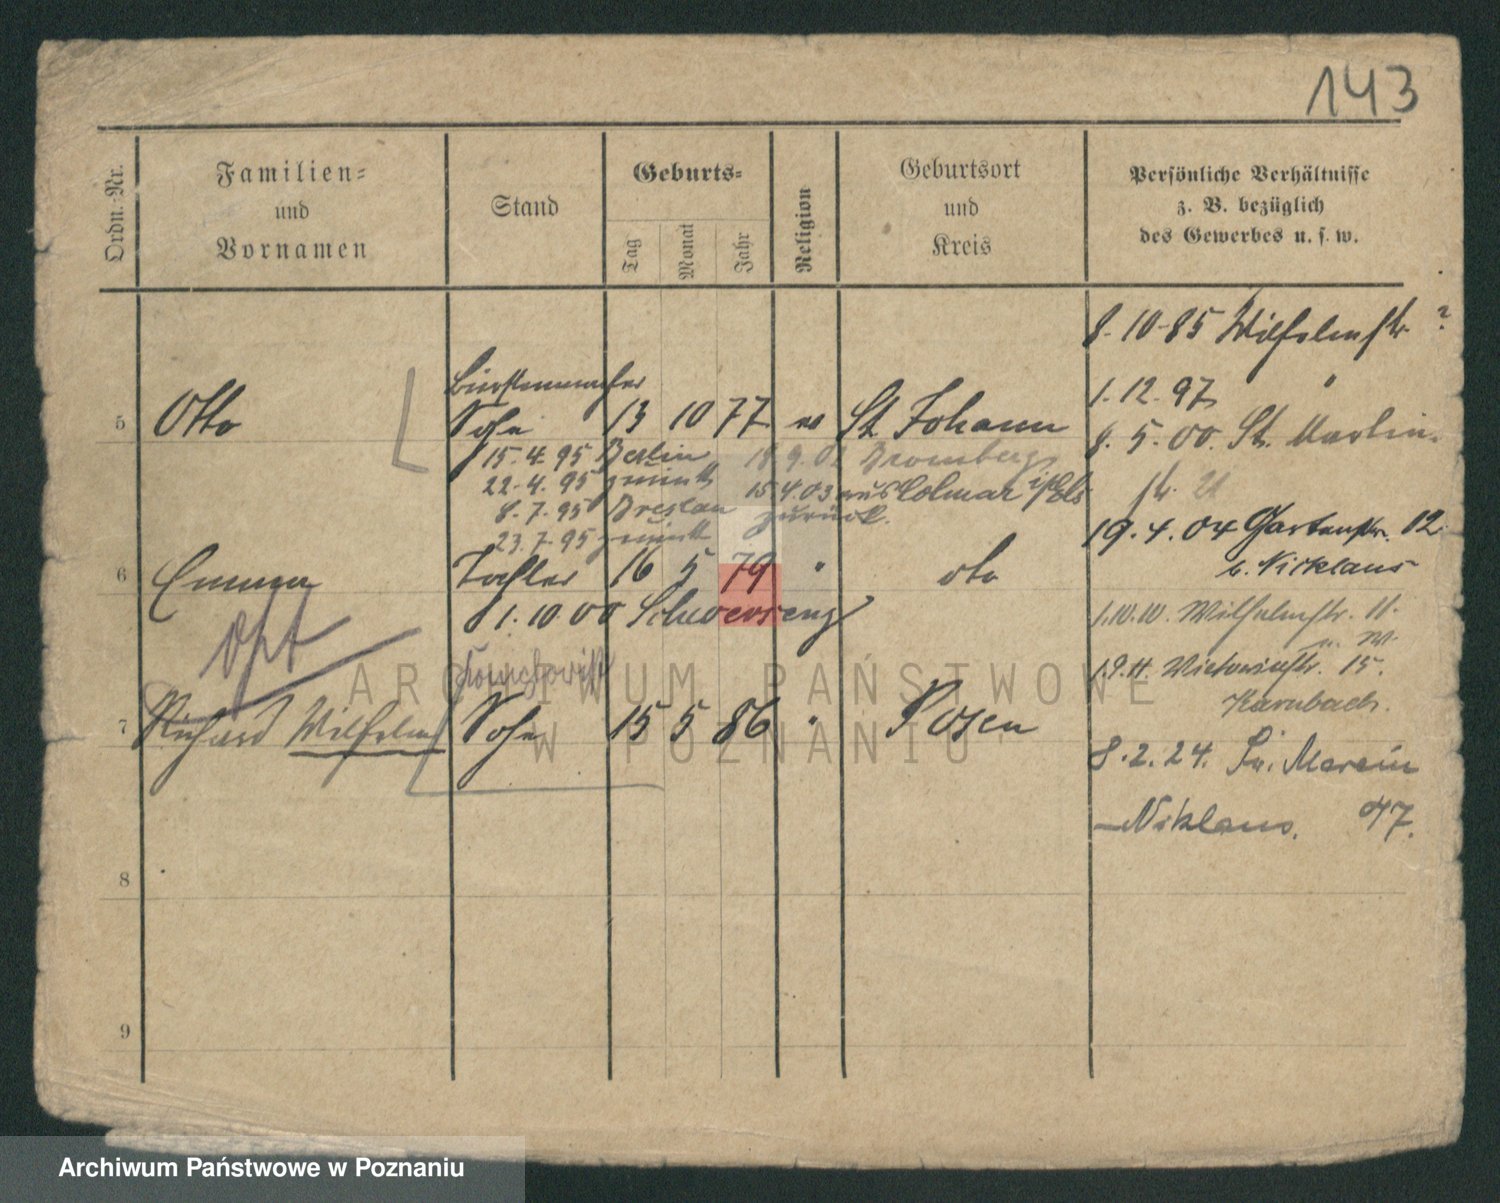 143
Ordn.-Nr.
Familien-
und
Vornamen
Stand
Geburts-
Tag
Monat
Jahr
Religion
Geburtsort
und
Kreis
Persönliche Verhältnisse
z. B. bezüglich
des Gewerbes u. s. w.
8. 10. 85 Wilhelmstr. ?
Bürstenmacher
1. 12. 97 "
5 Otto Sohn 13 10 77 ev St Johann
8. 5. 00. St. Martin-
15. 4. 95 Berlin 18. 9. 02 Bromberg
str.
22. 4. 95 zurück 15. 4. 03 aus Colmar i/Els
8. 7. 95 Breslau zurück.
23. 7. 95 zurück
19. 4. 04 Gartenstr. 12
b. Nicklaus
6 Emma Tochter 16 5 79 " dto
1. 10. 00 Schwersenz
1. 10. 10. Wilhelmstr. 11.
1. 9. 11. Victoriastr. 15.
Karnbach.
Opt
7 Richard Wilhelm Sohn 15 5 86 " Posen
8. 2. 24. Św. Marcin
Niklaus. 47.
8
9
ARCHIWUM PAŃSTWOWE
W POZNANIU
Archiwum Państwowe w Poznaniu